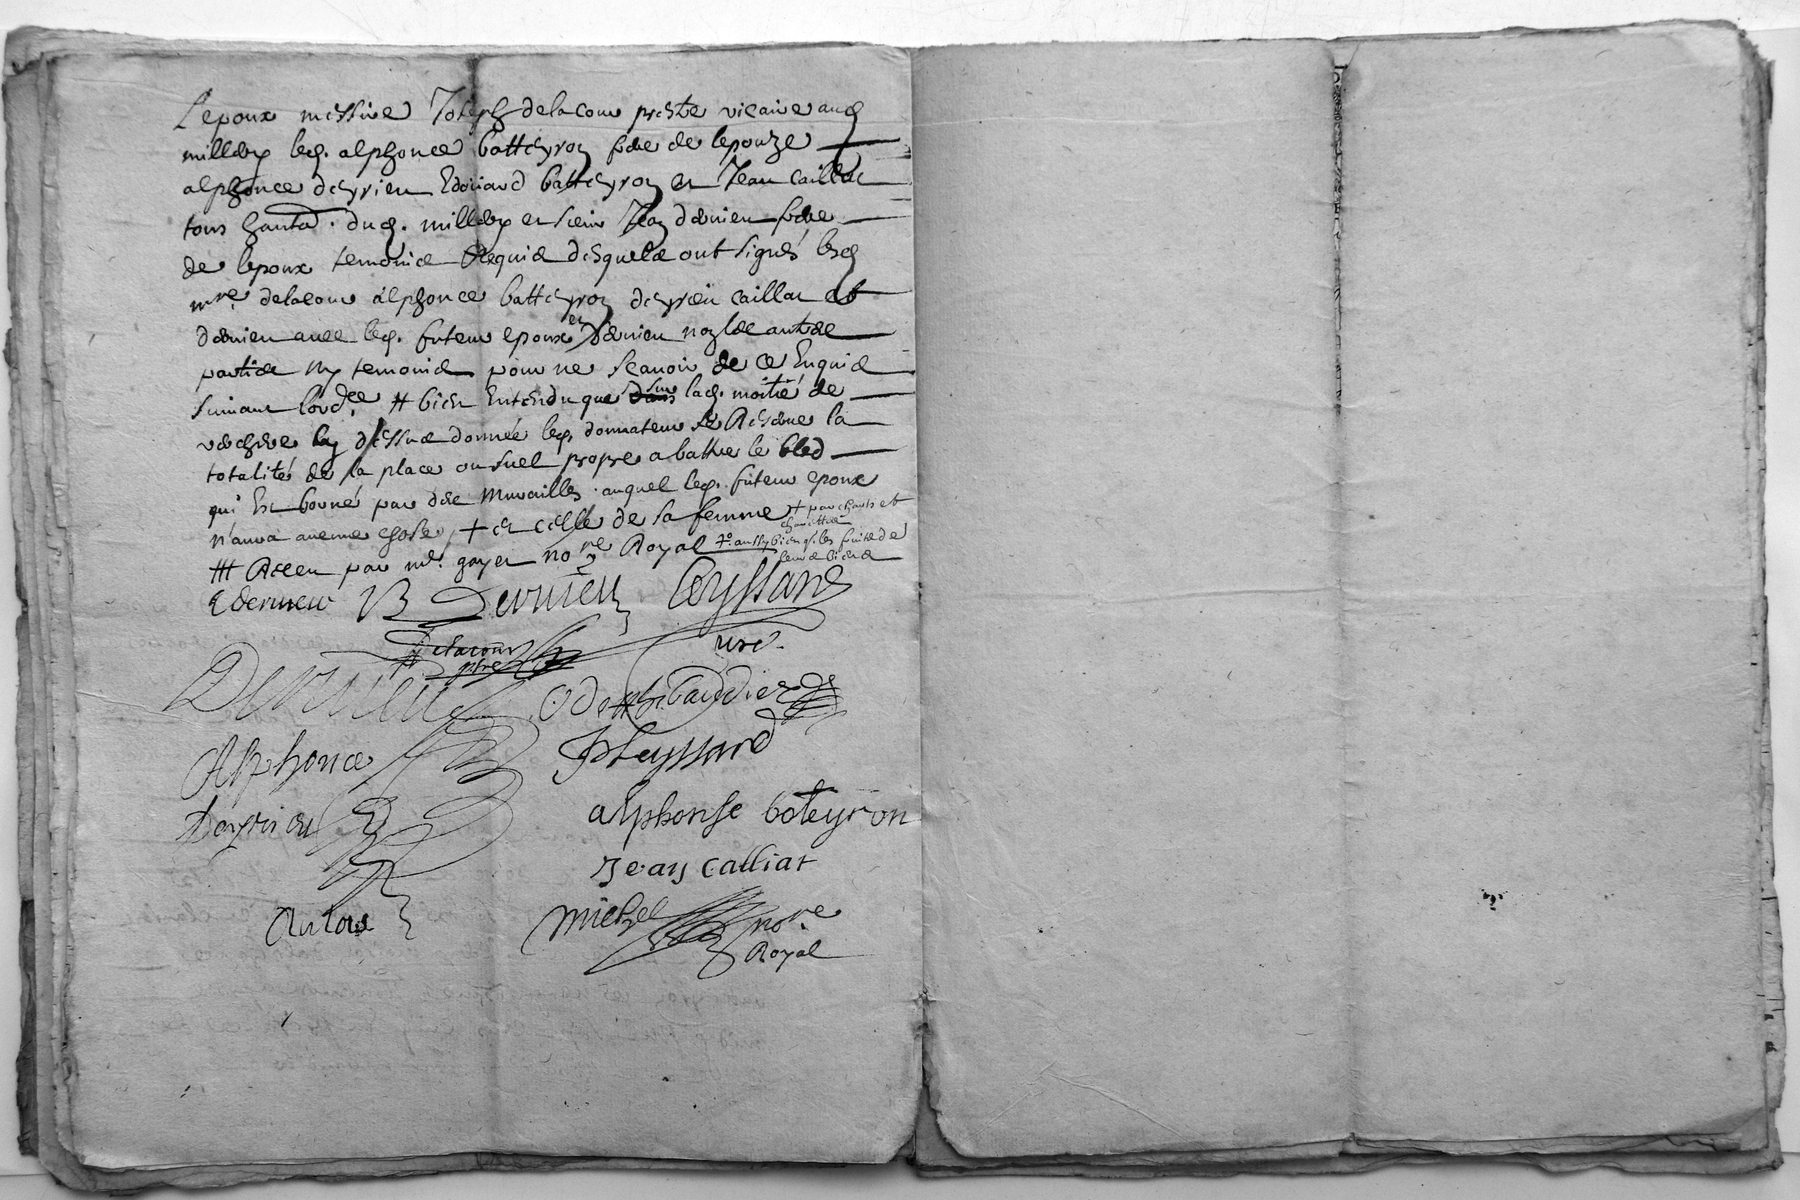 L'epoux messire Joseph delacour prestre vicaire aud
millery led. alphonce batteyron frere de lepouze
alphonce deyrieu Edouard batteyron et Jean caillat
tous habitā. dud. millery et sieur Jean dernieu frere
de lepoux temoins Requis desquels ont signés led
mre delacour alphonce batteyron deyrieu caillat et
dernieu avec led. futeur epoux et dernieu non les autres
parties ny temoins pour ne scavoir de ce Enquis
suivant lordce # bien Entendu que sur lad. moitié de
verchere cy dessus donnée led. donnateur se Reserve la
totalité de la place ou suel propre a battre le bled
qui Est borné par des Murailles auquel led. futeur epoux
n'aura aucune chose, + et celle de sa femme + par chars et
charettes
Receu par me. gayet nore Royal 7o. aussy bien q. les fruits de
leurs biens
Edernieu B Dernieu Ceyssard
Delacour
ptre
uré.
Dernieu Odette baudier
Alphonce JP Ceyssard
Deyrieu alphonse boteyron
Jean Calliat
Antois Michel nore
Royal